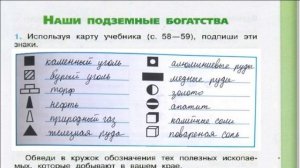 НАШИ ПОДЗЕМНЫЕ БОГАТСТВА
1. Используя карту учебника (с. 58—59), подпиши эти
знаки.
каменный уголь
бурый уголь
торф
нефть
природный газ
железная руда
алюминиевые руды
медные руды
золото
апатит
калийные соли
поваренная соль
Обведи в кружок обозначения тех полезных ископае-
мых, которые добывают в вашем крае.